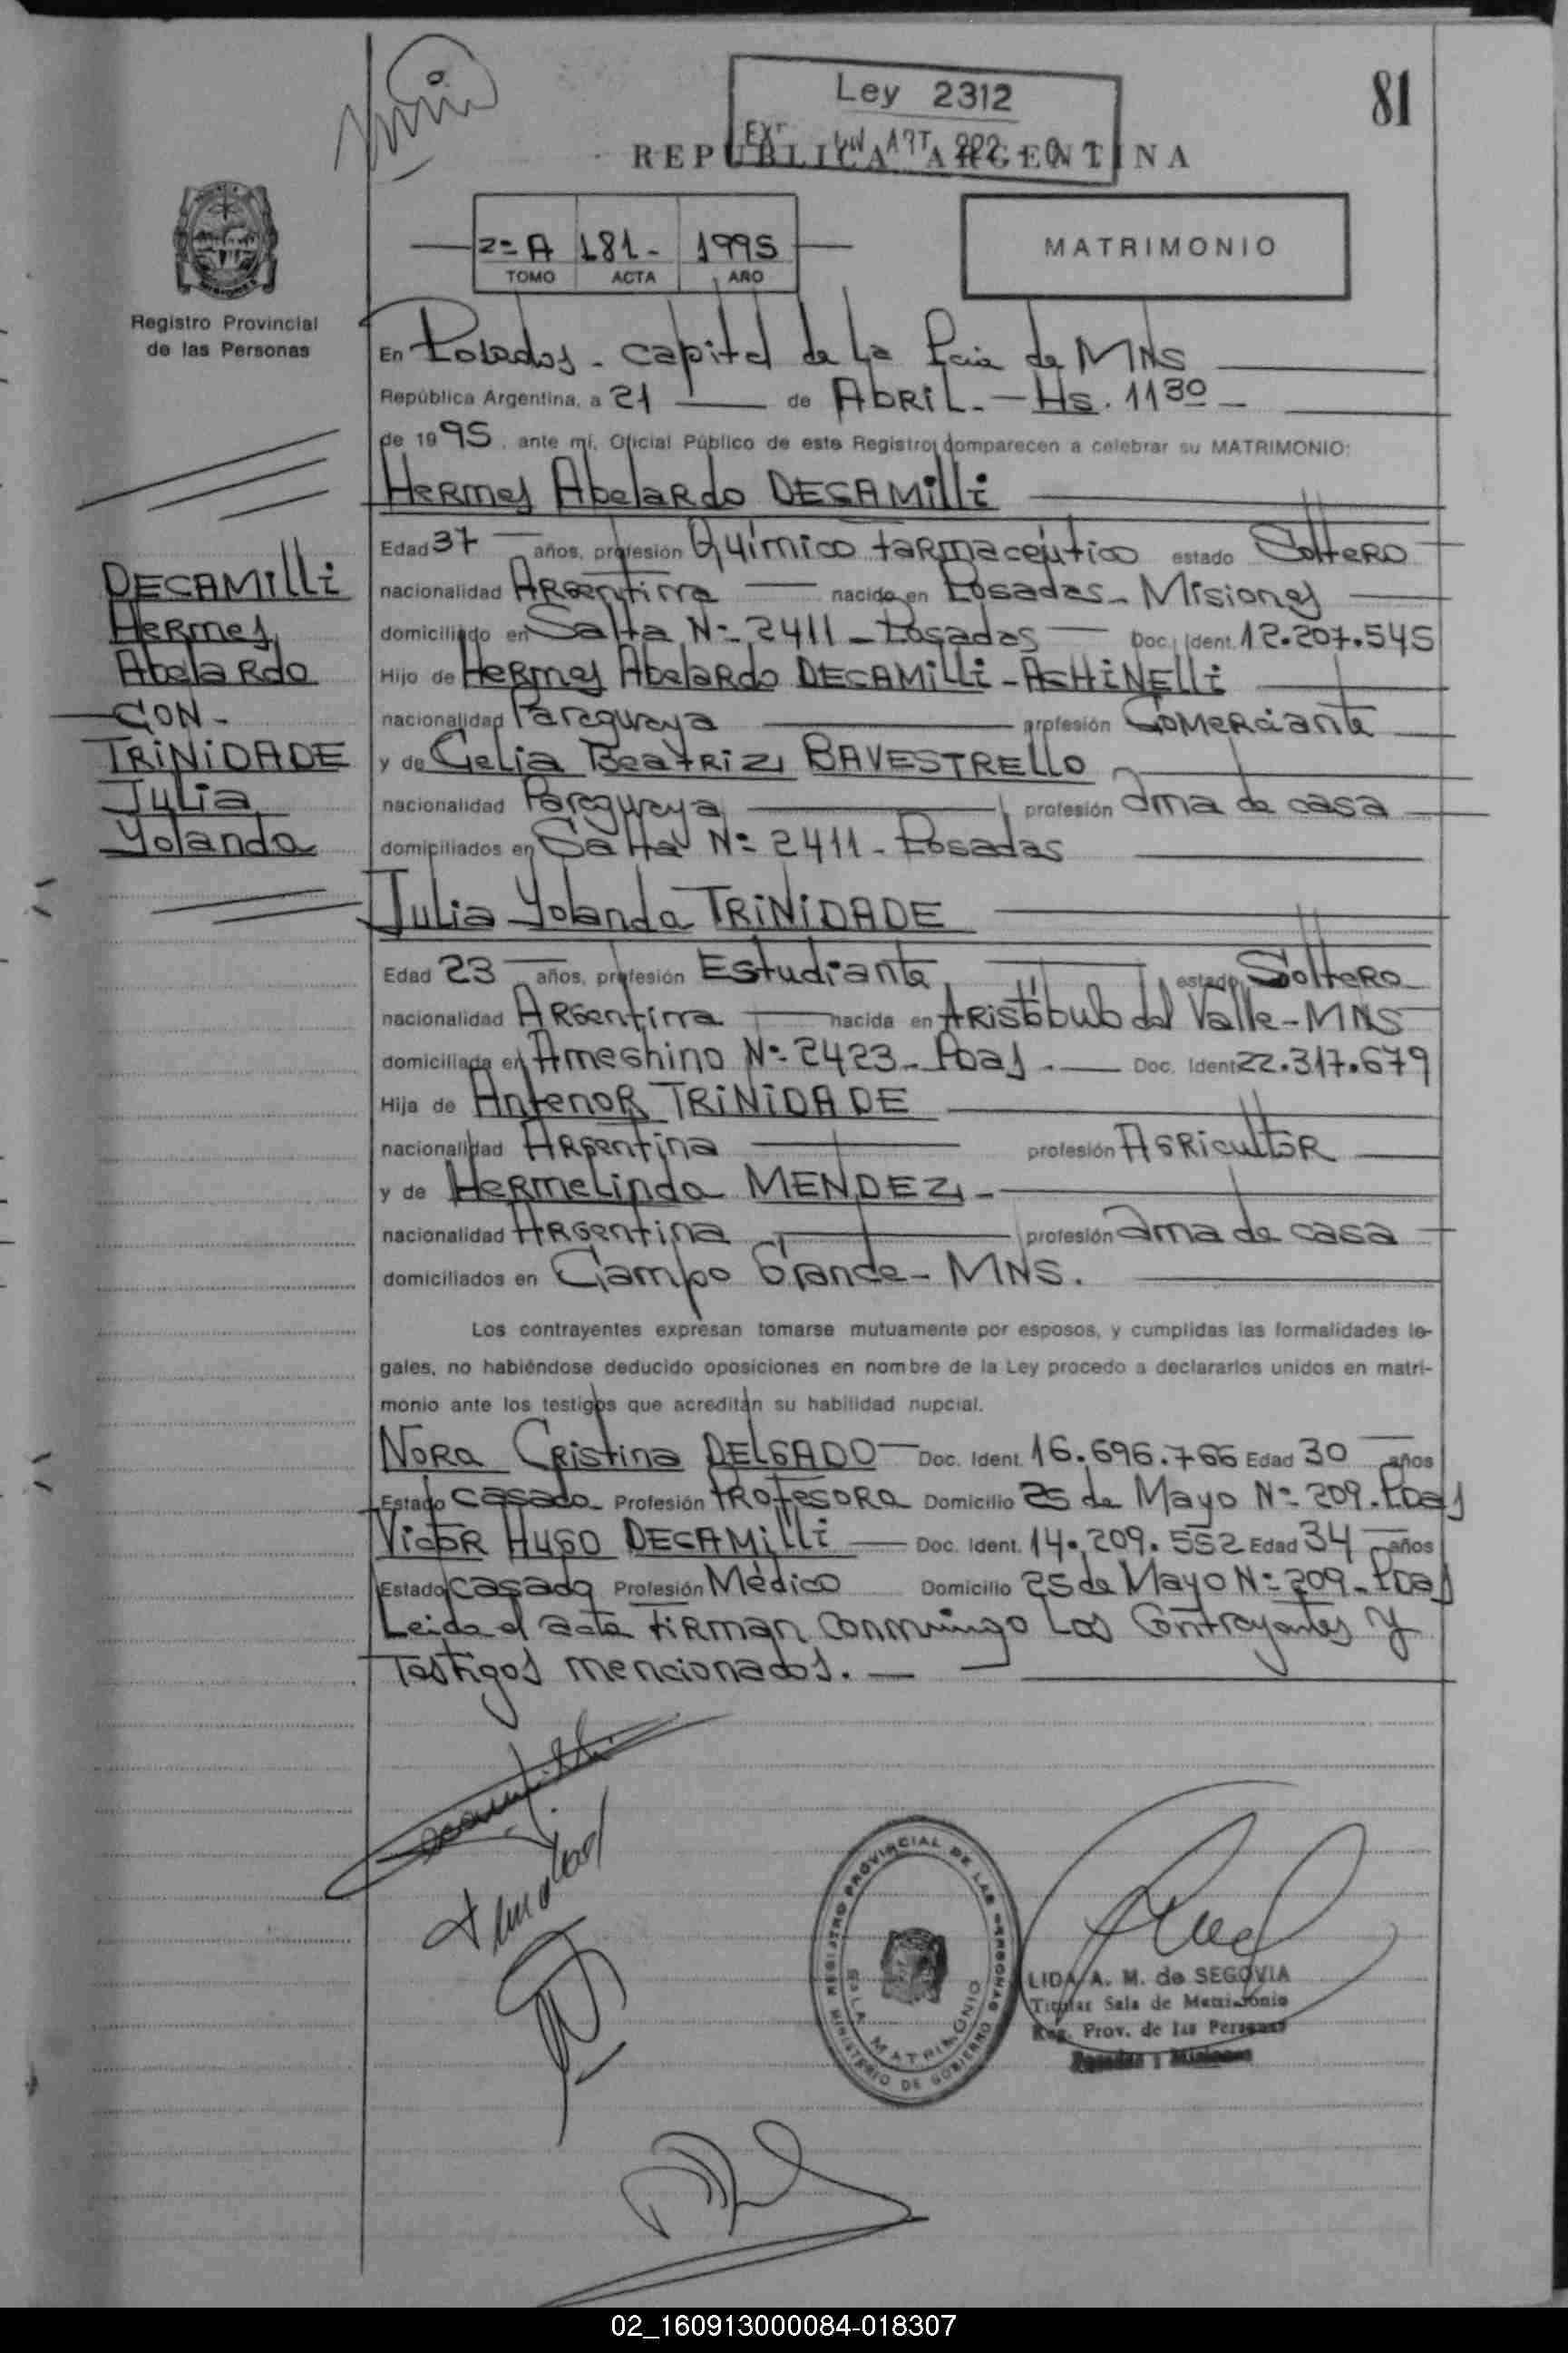 81
Ley 2312
REPUBLICA ARGENTINA
2º A 181- 1995
TOMO ACTA AÑO
MATRIMONIO
Registro Provincial
de las Personas
En Posadas - capital de la Pcia de MNS
República Argentina, a 21 de ABRIL. - Hs. 11 30 -
de 1995, ante mí, Oficial Público de este Registro, comparecen a celebrar su MATRIMONIO:
Hermes Abelardo DECAMilli
Edad 37 años, profesión Químico farmaceútico estado Soltero
nacionalidad Argentina nacido en Posadas - Misiones
domiciliado en Salta Nº 2411 - Posadas Doc. Ident. 12.207.545
Hijo de Hermes Abelardo DECAMilli - ACHINElli
nacionalidad Paraguaya profesión Comerciante
y de Celia Beatriz BAVESTRELLO
nacionalidad Paraguaya profesión ama de casa
domiciliados en Salta Nº 2411 - Posadas
DECAMilli
Hermes
Abelardo
CON -
TRINIDADE
Julia
Yolanda
Julia Yolanda TRINIDADE
Edad 23 años, profesión Estudiante estado Soltera
nacionalidad Argentina nacida en Aristóbulo del Valle - MNS
domiciliada en Ameghino Nº 2423 - Pdas. Doc. Ident. 22.317.679
Hija de Antenor TRINIDADE
nacionalidad Argentina profesión Agricultor
y de Hermelinda MENDEZ -
nacionalidad Argentina profesión ama de casa
domiciliados en Campo Grande - MNS.
Los contrayentes expresan tomarse mutuamente por esposos, y cumplidas las formalidades le-
gales, no habiéndose deducido oposiciones en nombre de la Ley procedo a declararlos unidos en matri-
monio ante los testigos que acreditan su habilidad nupcial.
Nora Cristina DELGADO Doc. Ident. 16.696.766 Edad 30 años
Estado casada Profesión Profesora Domicilio 25 de Mayo Nº 209 - Pdas
Victor Hugo DECAMilli Doc. Ident. 14.209.552 Edad 34 años
Estado casado Profesión Médico Domicilio 25 de Mayo Nº 209 - Pdas
Leida el acta firman conmigo los Contrayentes y
Testigos mencionados. -
REGISTRO PROVINCIAL DE LAS PERSONAS
SALA MATRIMONIO
MINISTERIO DE GOBIERNO
LIDA A. M. de SEGOVIA
Titular Sala de Matrimonio
Reg. Prov. de las Personas
Posadas : Misiones
02_160913000084-018307